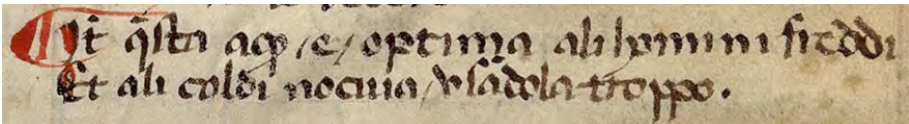 ¶ It̄ q̄sta acq̄ /e/ optima ali homini freddi
Et ali coldi nociua / vsādola troppo.